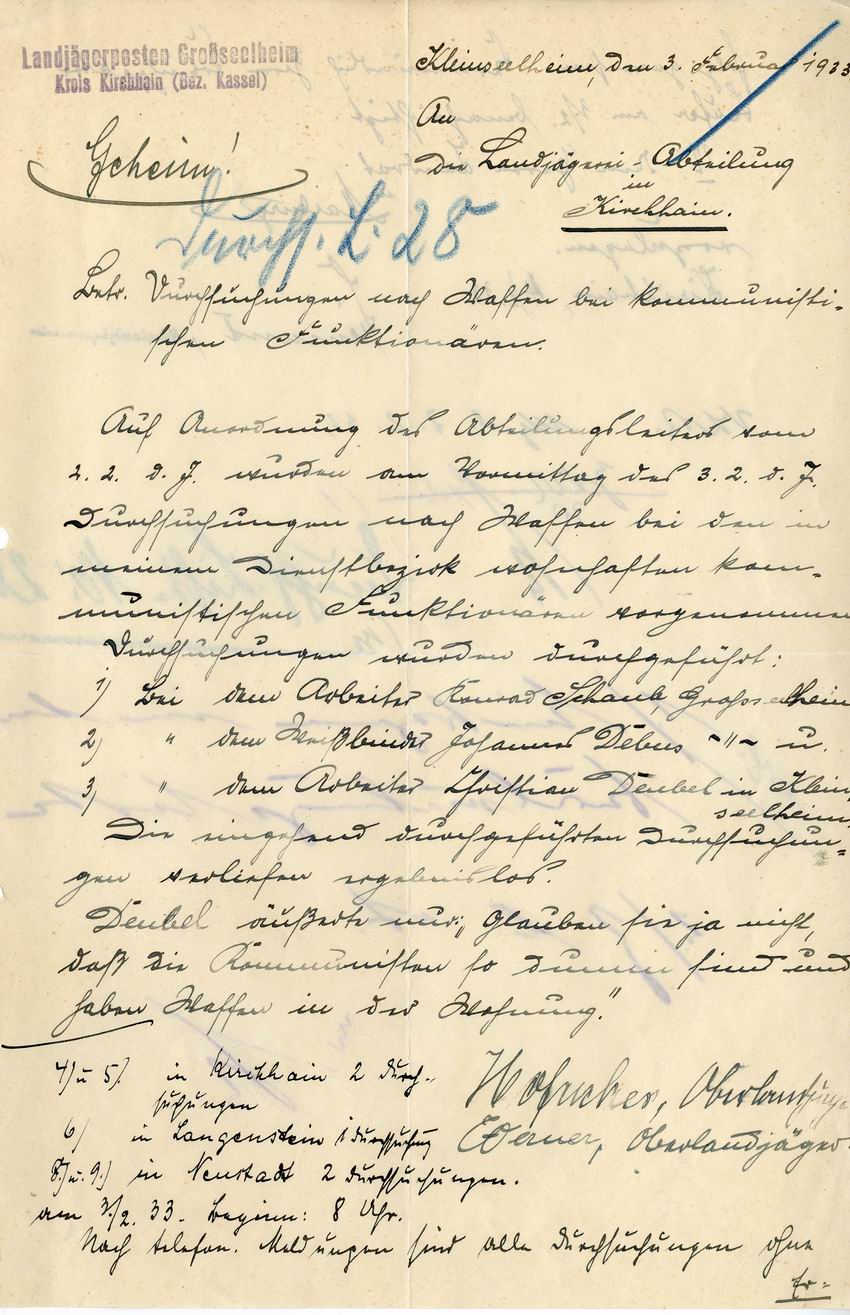 Landjägerposten Großseelheim
Kreis Kirchhain (Bez. Kassel)
Kleinseelheim, den 3. Februar 1933
An
die Landjägerei-Abteilung
in
Kirchhain.
Geheim!
Durchs. L. 28
Betr. Durchsuchungen nach Waffen bei kommunisti-
schen Funktionären.
Auf Anordnung des Abteilungsleiters vom
2. 2. d. J. wurden am Vormittag des 3. 2. d. J.
Durchsuchungen nach Waffen bei den in
meinem Dienstbezirk wohnhaften kom-
munistischen Funktionären vorgenommen
Durchsuchungen wurden durchgeführt:
1) Bei dem Arbeiter Konrad Schaub, Grossseelheim
2) " dem Weißbinder Johannes Debus -"- u.
3) " dem Arbeiter Christian Deubel in Klein
seelheim.
Die eingehend durchgeführten Durchsuchun-
gen verliefen ergebnislos.
Deubel äußerte nur: „Glauben sie ja nicht,
daß die Kommunisten so dumm sind und
haben Waffen in der Wohnung."
Oberlandjäger
Werner, Oberlandjäger
4) u 5) in Kirchhain 2 durch-
suchungen
6) in Langenstein 1 durchsuchung
8.) u. 9.) in Neustadt 2 durchsuchungen.
am 3./2. 33. Beginn: 8 Uhr.
Nach telefon. Meldungen sind alle Durchsuchungen ohne
Er-